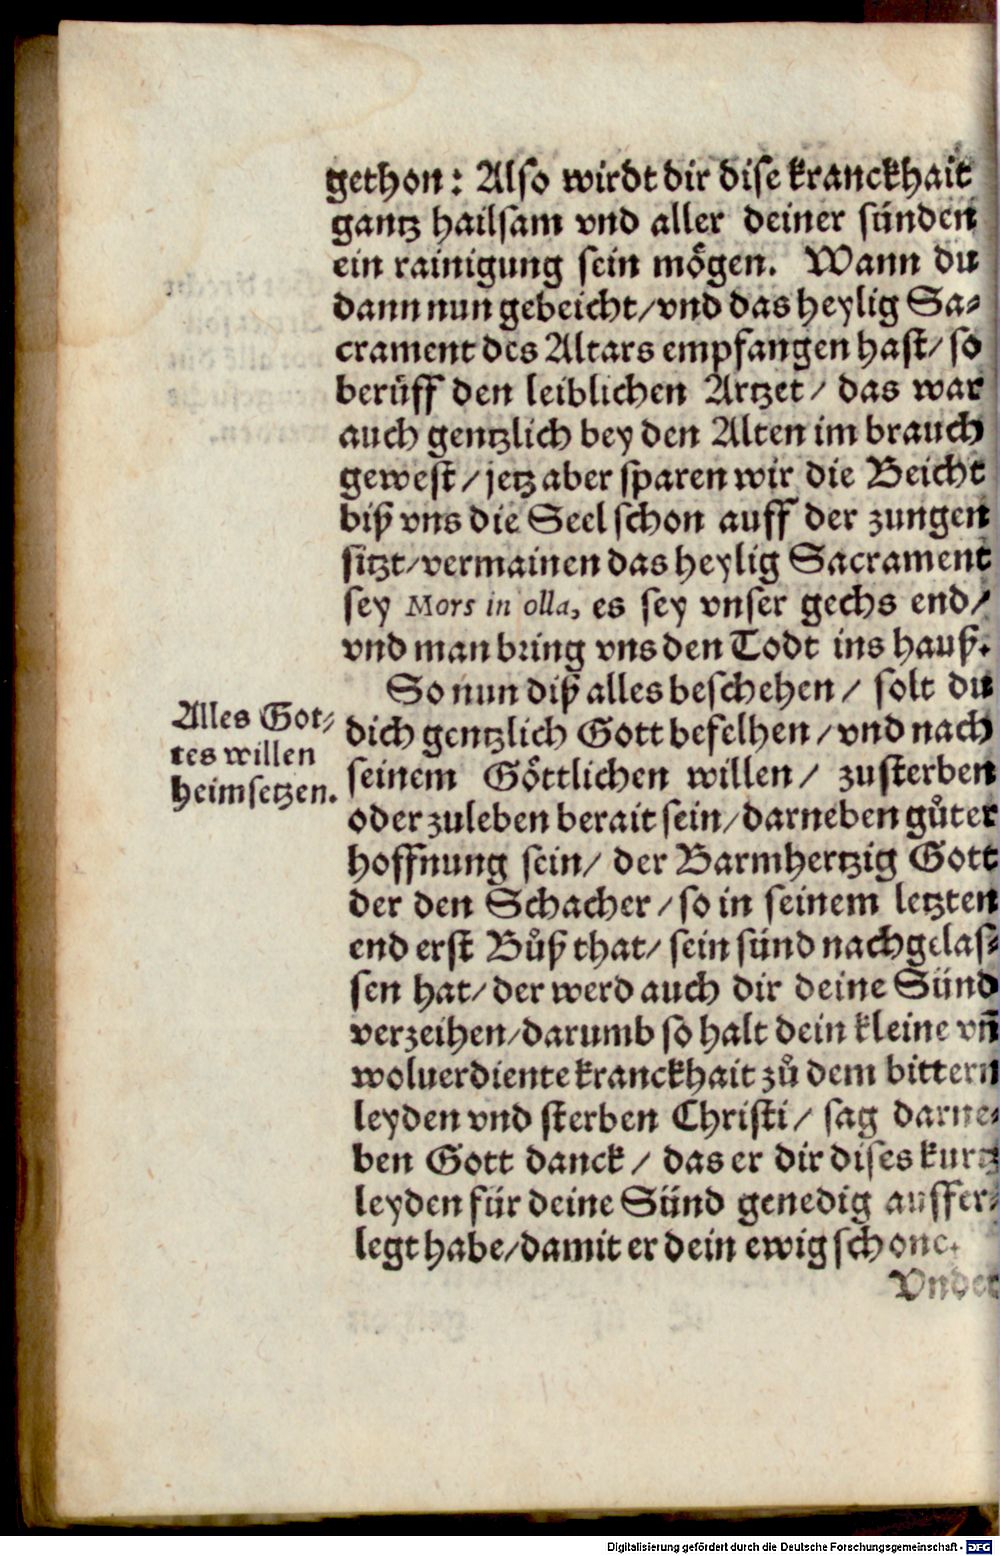 gethon: Also wirdt dir dise kranckhait
gantz hailsam vnd aller deiner sünden
ein rainigung sein mögen. Wann du
dann nun gebeicht/vnd das heylig Sa-
crament des Altars empfangen hast/ so
berüff den leiblichen Artzet/ das war
auch gentzlich bey den Alten im brauch
gewest/jetz aber sparen wir die Beicht
biß vns die Seel schon auff der zungen
sitzt/vermainen das heylig Sacrament
sey Mors in olla, es sey vnser gechs end/
vnd man bring vns den Todt ins hauß.
So nun diß alles beschehen/ solt du
dich gentzlich Gott befelhen/vnd nach
seinem Göttlichen willen/ zusterben
oder zuleben berait sein/darneben gůter
hoffnung sein/ der Barmhertzig Gott
der den Schacher/so in seinem letzten
end erst Bůß that/ sein sünd nachgelas-
sen hat/der werd auch dir deine Sünd
verzeihen/darumb so halt dein kleine vñ
woluerdiente kranckhait zů dem bittern
leyden vnd sterben Christi/ sag darne-
ben Gott danck/ das er dir dises kurtz
leyden für deine Sünd genedig auffer-
legt habe/damit er dein ewig schone.
Vnder
Alles Got-
tes willen
heimsetzen.
Digitalisierung gefördert durch die Deutsche Forschungsgemeinschaft - DFG